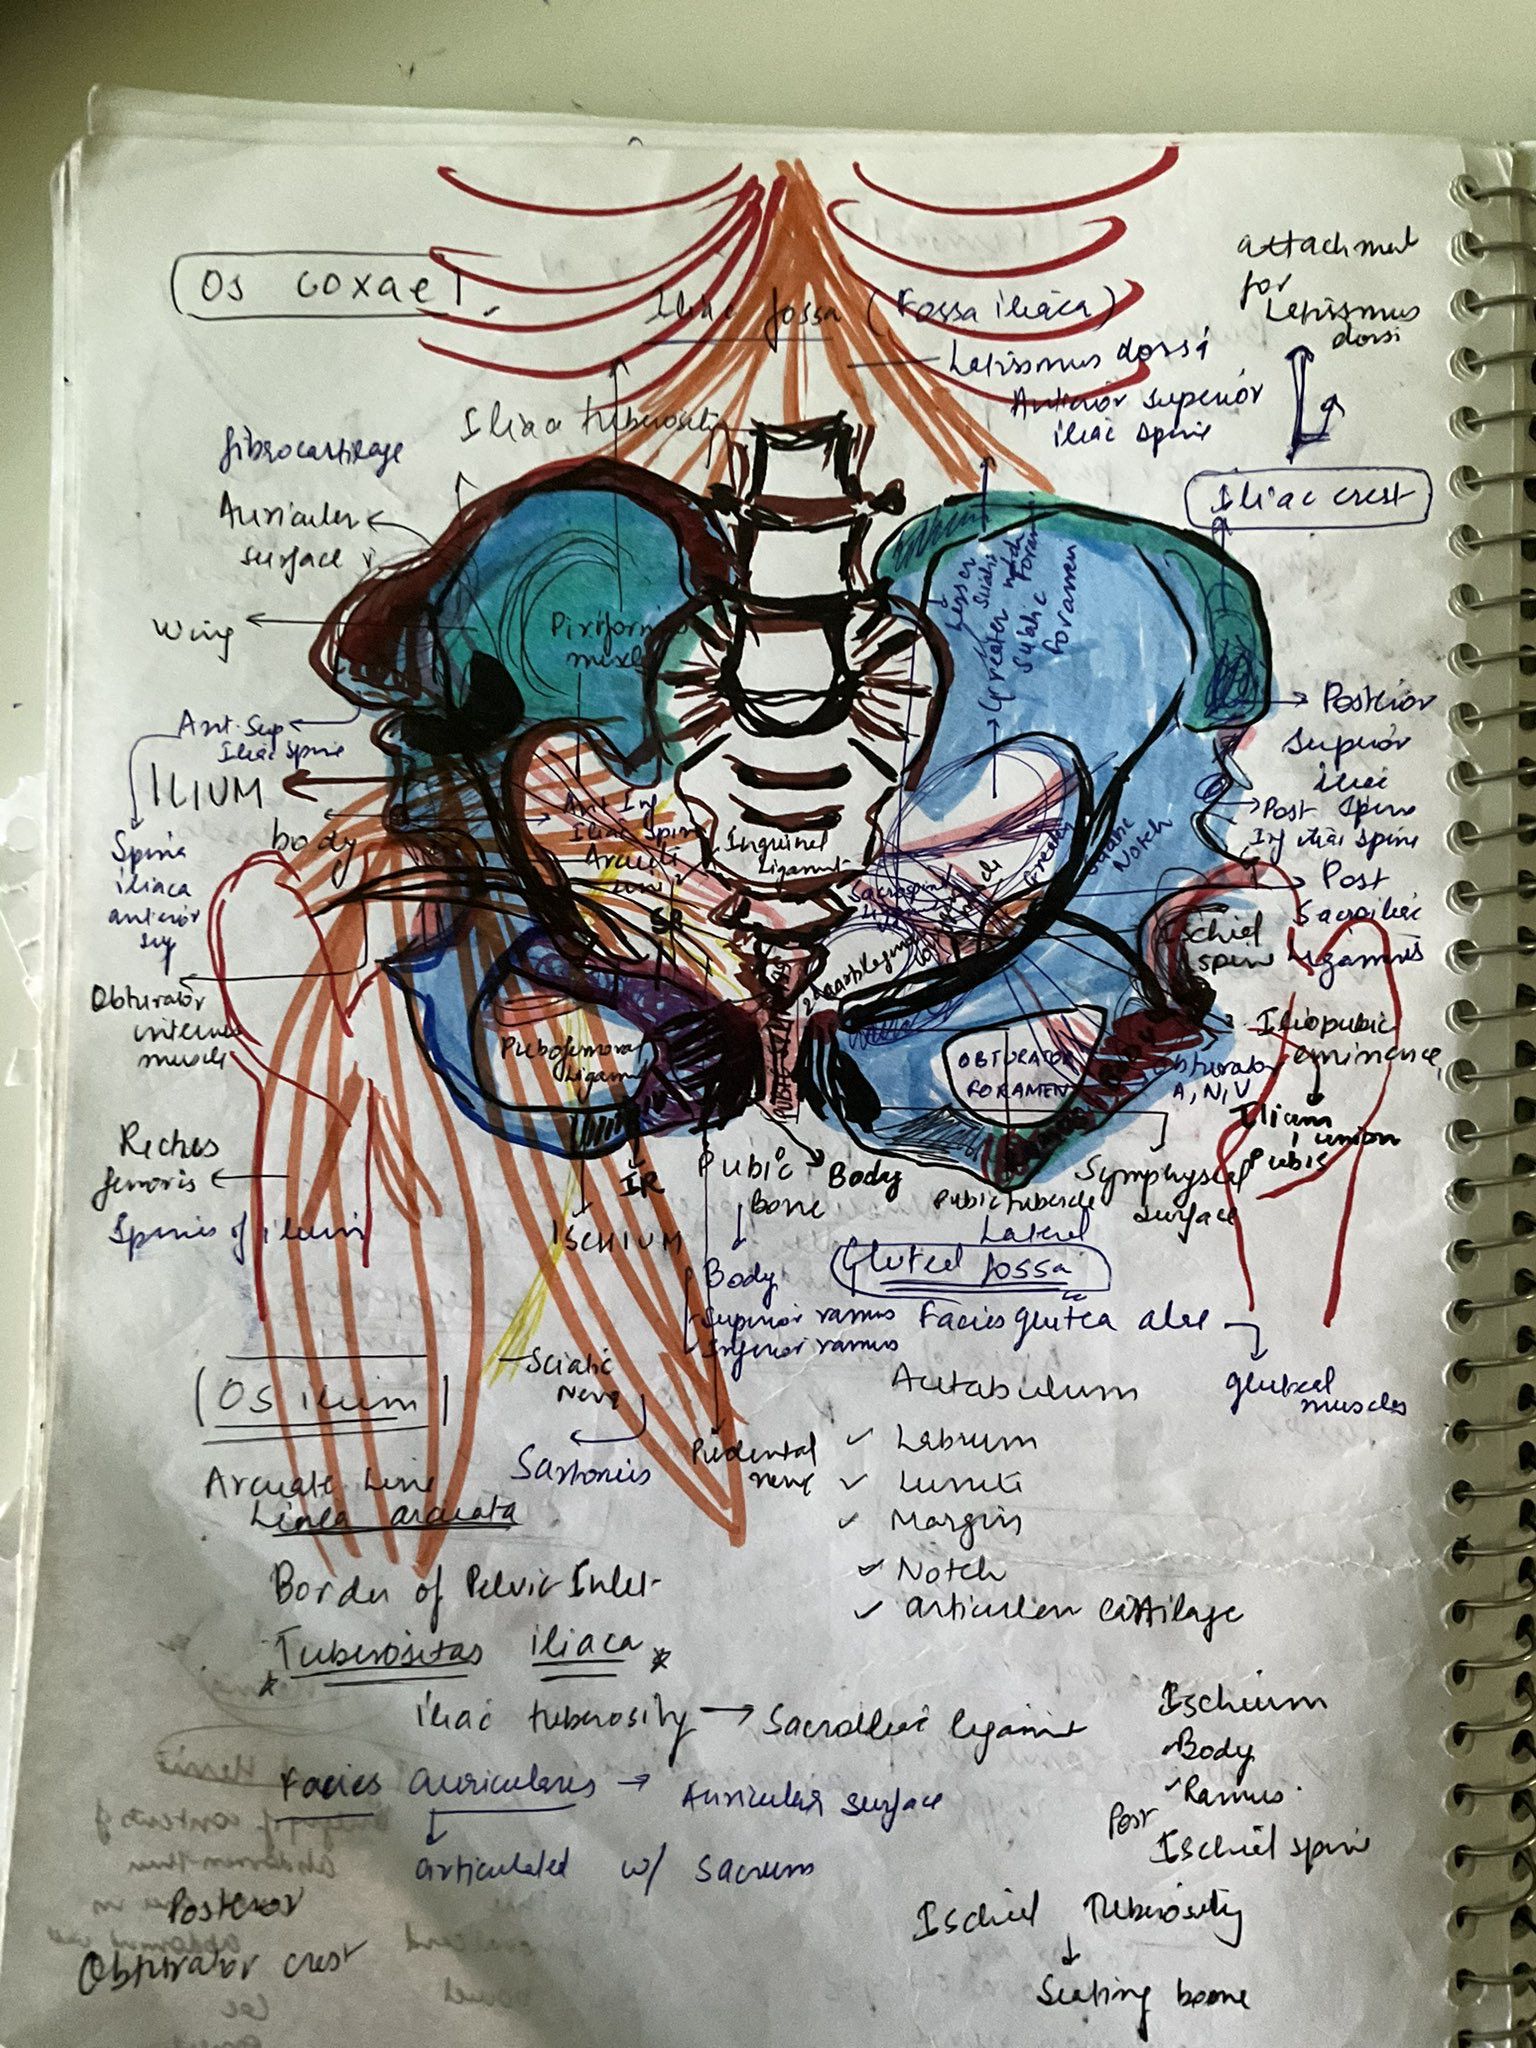 Os coxae
Iliac fossa (Fossa iliaca)
attachment
for
Latissmus
dorsi
Latissmus dorsi
Anterior superior
iliac spine
Iliac tuberosity
fibrocartilage
Auricular
surface
Iliac crest
Wing
Piriformis
muscle
Lesser sciatic notch
Greater sciatic foramen
foramen
Ant. Sup
Iliac spine
ILIUM
body
Spina
iliaca
anterior
sup
Ant Inf
Iliac Spine
Inguinal
Ligament
Greater
Sciatic
Notch
Posterior
superior
iliac
spine
Post
Inf iliac spine
Post
Sacroiliac
Ligaments
SR
Sacrospinous
Ischial
spine
Obturator
internus
muscle
Pubofemoral
ligament
PUBIC SYMPHYSIS
OBTURATOR
FORAMEN
Iliopubic
eminence
Obturator
A, N, V
Ilium
union
Pubis
Rectus
femoris
Spines of ilium
IR
ISCHIUM
Pubic
Bone
Body
Pubic tubercle
Symphyseal
surface
Lateral
Gluteal fossa
Body
Superior ramus
Inferior ramus
Facies glutea alae
gluteal
muscles
Sciatic
Nerve
Sartorius
Pudental
nerve
Os ilium
Acetabulum
Labrum
Lunate
Margin
Notch
articular cartilage
Arcuate Line
Linea arcuata
Border of Pelvic Inlet
Tuberositas iliaca
iliac tuberosity → Sacroiliac ligament
Facies auriculares → Auricular surface
articulated w/ Sacrum
Posterior
Obturator crest
Ischium
Body
Ramus
Post
Ischial spine
Ischial Tuberosity
Seating bone